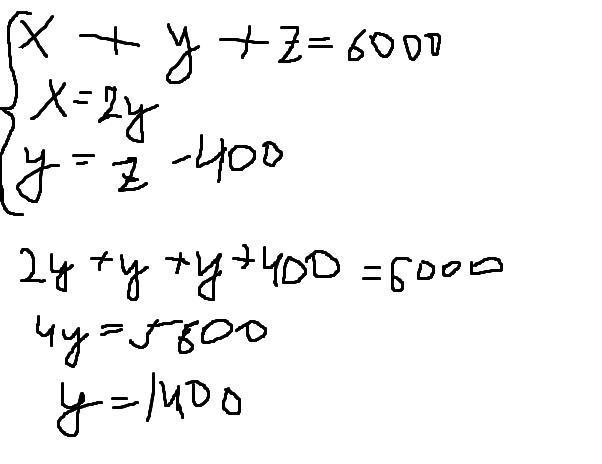 x + y + z = 6000
x = 2y
y = z - 400
2y + y + y + 400 = 6000
4y = 5600
y = 1400